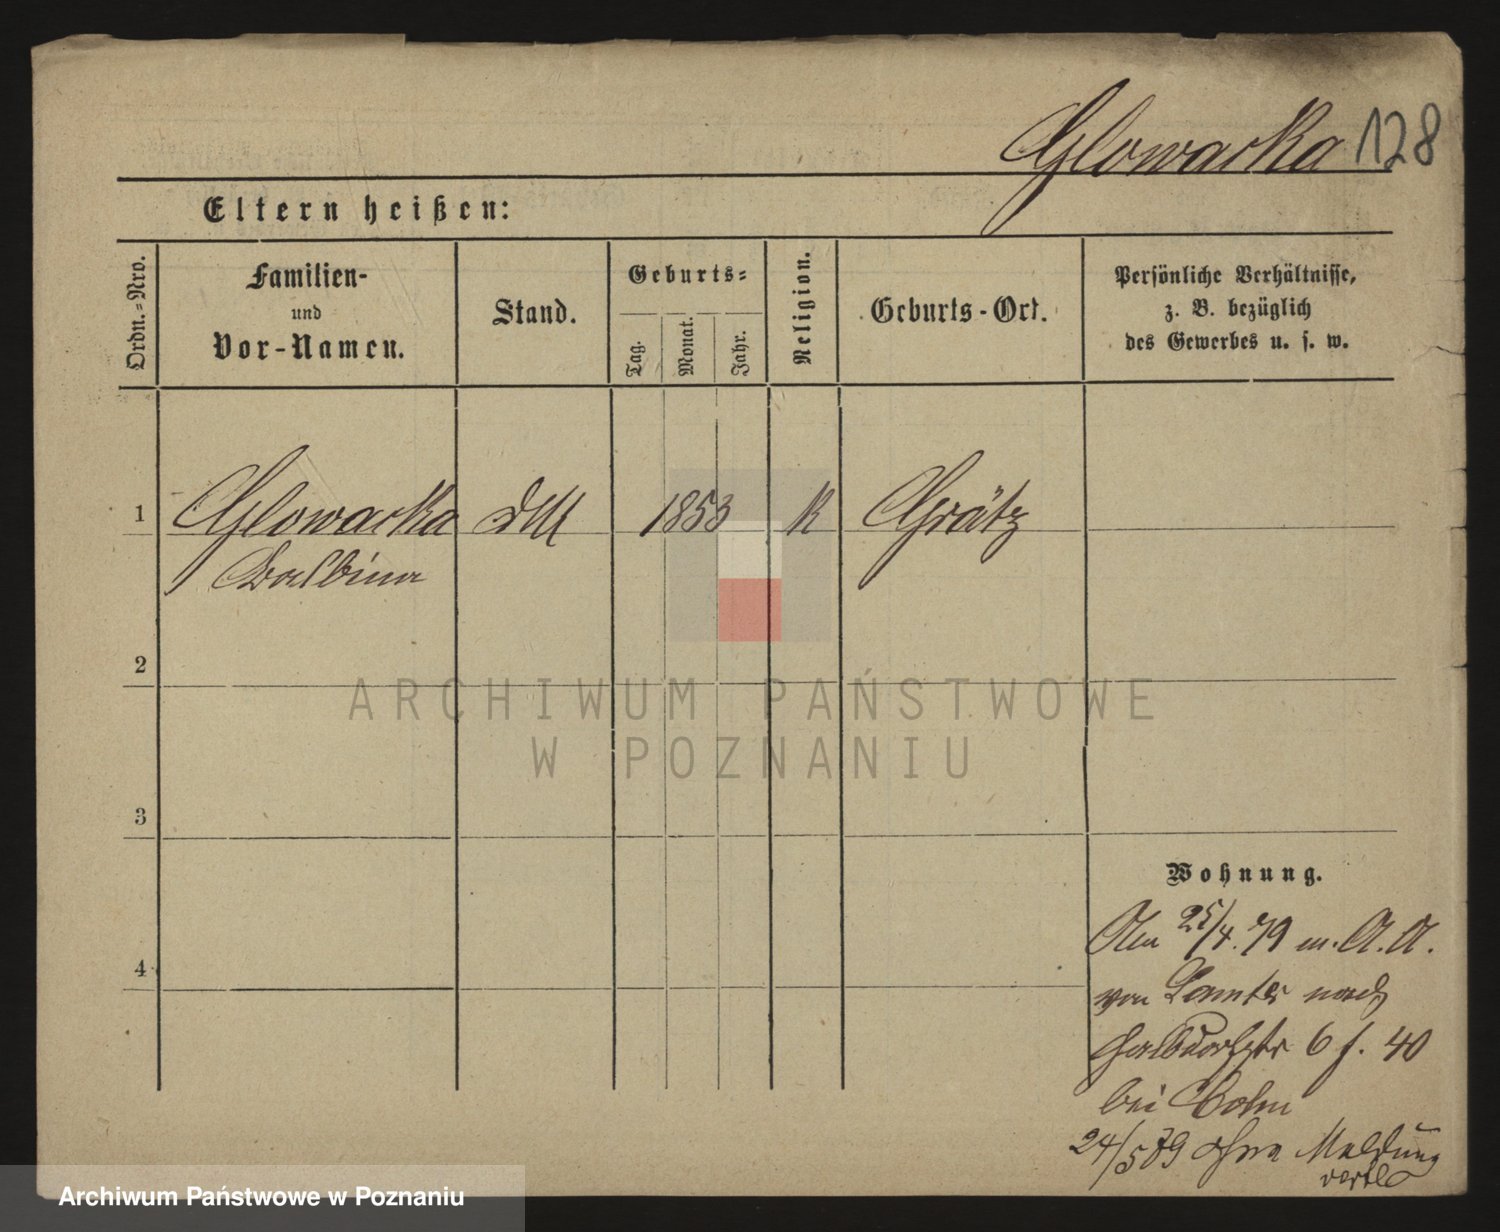 Glowacka 128
Eltern heißen:
Ordn.=Nro.
Familien-
und
Vor-Namen.
Stand.
Geburts=
Tag.
Monat.
Jahr.
Religion.
Geburts-Ort.
Persönliche Verhältnisse,
z. B. bezüglich
des Gewerbes u. s. w.
1 Glowacka 1853 K Grätz
Balbina
2
ARCHIWUM PAŃSTWOWE
W POZNANIU
3
4
Wohnung.
Am 25/4. 79 m. A. A.
von nach
Halbdorfstr 6 f. 40
bei Cohn
24/5 79 ohne Meldung
Archiwum Państwowe w Poznaniu